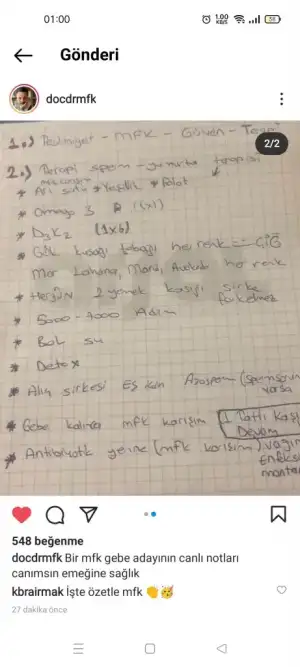 01:00
1,00 KB/S
38
Gönderi
docdrmfk
2/2
1.) - MFK - Güven -
2.) Terapi sperm - yumurta terapisi
* Arı sütü * Yeşillik * Polat
* Omega 3 (1x1)
* D3K2 (1x6)
* Gök kuşağı tabağı her renk = ÇİĞ
Mor Lahana, Marul, her renk
* Hergün 2 yemek kaşığı sirke farketmez
* 5000 - 7000 Adım
* Bol su
* Detox
* Alıç sirkesi Eş için Azospermi varsa
* Gebe kalınca mfk karışım 1 Tatlı Kaş
Devam
* Antibiyotik yerine (mfk karışım)
548 beğenme
docdrmfk Bir mfk gebe adayının canlı notları
canımsın emeğine sağlık
kbrairmak İşte özetle mfk 👏🥳
27 dakika önce